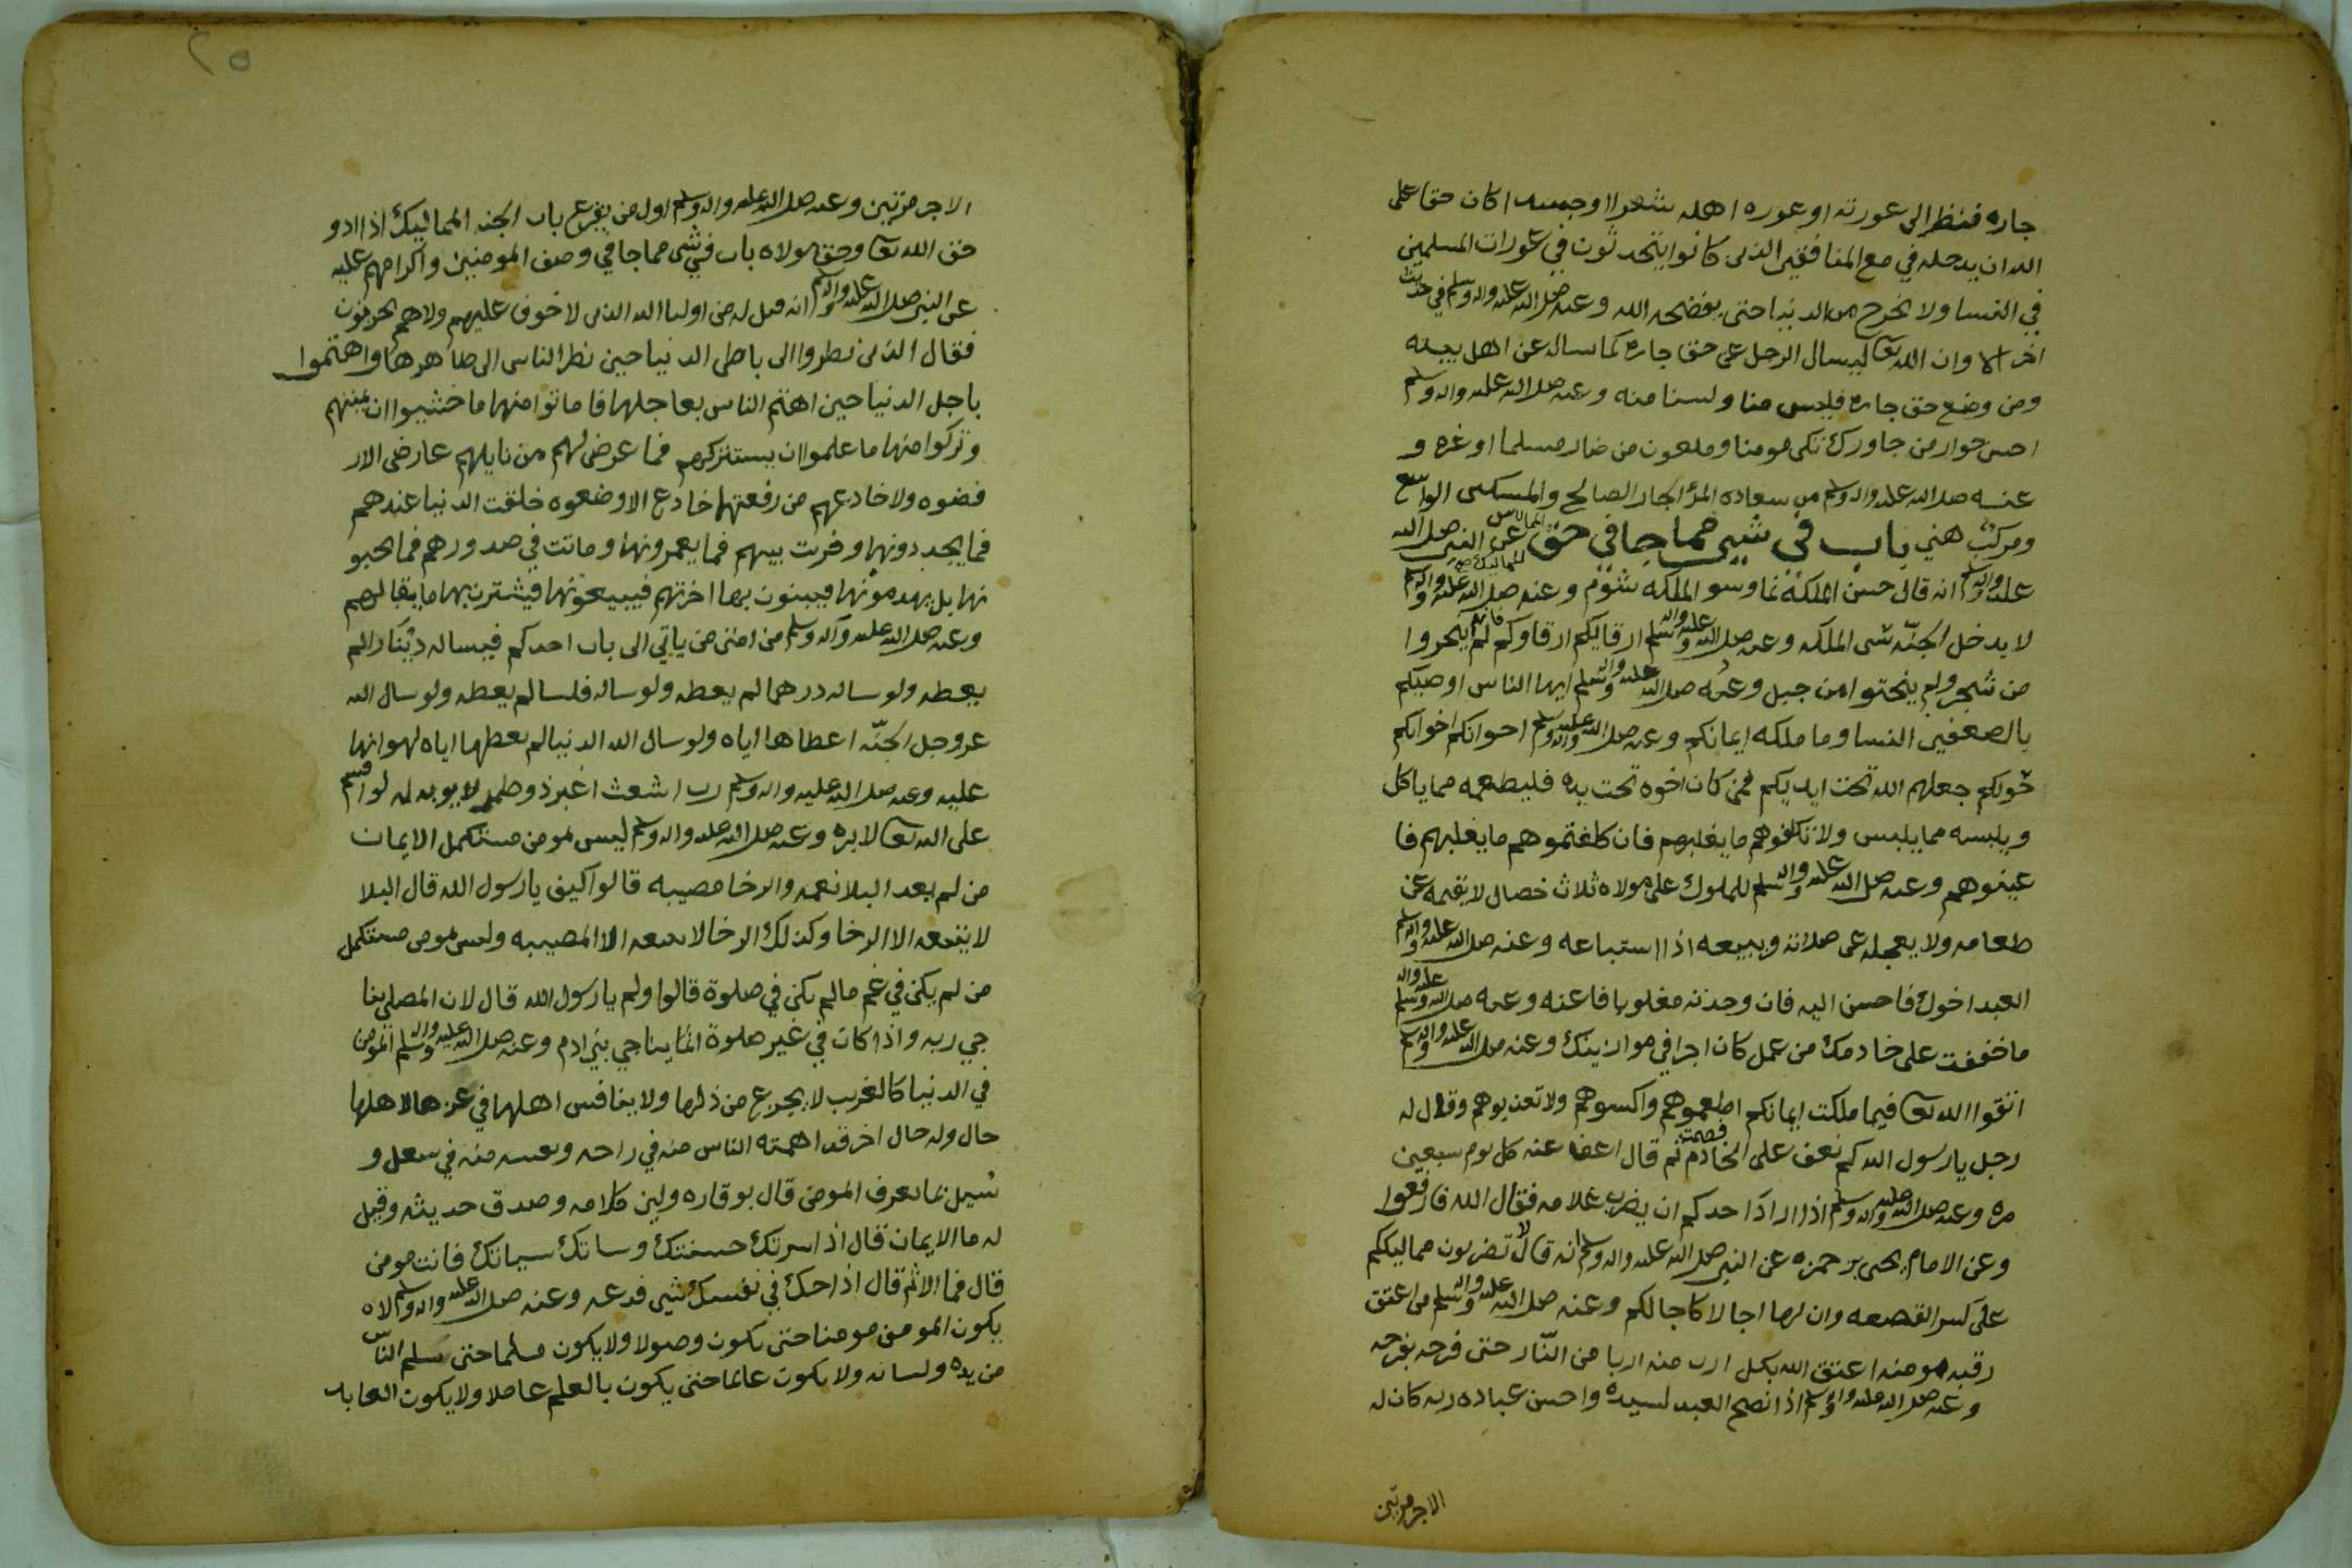 جاره فنظر الى عورته او عوره اهله شعرا او جسدا كان حقا على
الله ان يدخله في مع المنافقين الذين كانوا يتحدثون في عورات المسلمين
في النسا ولا يخرج من الدنيا حتى يفضحه الله وعنه صلى الله عليه واله وسلم في حديث
اخر الا وان الله تعا ليسال الرجل عن حق جاره كما ساله عن اهل بيته
ومن وضع حق جاره فليس منا ولسنا منه وعنه صلى الله عليه واله وسلم
احسن جوار من جاورك تكن مومنا وملعون من ضار مسلما او غره و
عنه صلى الله عليه واله وسلم من سعاده المرء الجار الصالح والمسكن الواسع
ومركب هني باب في شيى مما جا في حق المماليك عن النبي صلى الله
عليه واله وسلم انه قال حسن الملكه نما وسو الملكه شوم وعنه صلى الله عليه واله وسلم
لا يدخل الجنّه سى الملكه وعنه صلى الله عليه واله وسلم ارقايكم ارقاوكم فانهم لم ينحروا
من شجر ولم ينحتوا من جبل وعنه صلى الله عليه واله وسلم ايها الناس اوصيكم
بالضعفين النسا وما ملكه ايمانكم وعنه صلى الله عليه واله وسلم اخوانكم اخوانكم
خولكم جعلهم الله تحت ايديكم فمن كان اخوه تحت يده فليطعمه مما ياكل
ويلبسه مما يلبس ولا تكلفوهم ما يغلبهم فان كلفتموهم ما يغلبهم فا
عينوهم وعنه صلى الله عليه واله وسلم للملوك على مولاه ثلاث خصال لا يقيمه عن
طعامه ولا يعجله عن صلاته ويبيعه اذا استباعه وعنه صلى الله عليه واله وسلم
العبد اخوك فاحسن اليه فان وجدته مغلوبا فاعنه وعنه صلى الله عليه واله وسلم
ما خففت على خادمك من عمل كان اجرا في موازينك وعنه صلى الله عليه واله وسلم
اتقوا الله تعا فيما ملكت ايمانكم اطعموهم واكسوهم ولا تعذبوهم وقال له
رجل يا رسول الله كم نعف على الخادم فصمت ثم قال اعف عنه كل يوم سبعين
مره وعنه صلى الله عليه واله وسلم اذا اراد احدكم ان يضرب غلامه فقال الله فارفعوا
وعن الامام يحيى بن حمزه عن النبي صلى الله عليه واله وسلم انه قال لا تضربون مماليككم
على كسر القصعه وان لها اجالا كاجالكم وعنه صلى الله عليه واله وسلم من اعتق
رقبه مومنه اعتق الله بكل ارب منه اربا من النّار حتى فرجه بفرجه
وعنه صلى الله عليه واله وسلم اذا نصح العبد لسيده واحسن عباده ربه كان له
الاجر مرتين
٢٥
الاجر مرتين وعنه صلى الله عليه واله وسلم اول من يقرع باب الجنه المماليك اذا ادو
حق الله تعا وحق مولاه باب في شى مما جا في وصف المومنين واكرامهم عليه
عن النبي صلى الله عليه واله وسلم انه قيل له من اوليا الله الذين لا خوف عليهم ولا هم يحزنون
فقال الذين نظروا الى باطن الدنيا حين نظر الناس الى ظاهرها واهتموا
باجل الدنيا حين اهتم الناس بعاجلها فاماتوا منها ما خشيوا ان يميتهم
وتركوا منها ما علموا ان يستتركهم فما عرض لهم من نايلهم عارض الا ر
فضوه ولا خادعهم من رفعتها خادع الا وضعوه خلقت الدنيا عندهم
فما يجددونها وخربت بينهم فما يعمرونها وماتت في صدورهم فما يحيو
نها بل يهدمونها فيبنون بها اخرتهم فيبيعونها فيشترن بها ما يبقا لهم
وعنه صلى الله عليه واله وسلم من امتى من ياتي الى باب احدكم فيساله دينارا لم
يعطه ولو ساله درهما لم يعطه ولو ساله فلسا لم يعطه ولو سال الله
عز وجل الجنّه اعطاها اياه ولو سال الله الدنيا لم يعطها اياه لهوانها
عليه وعنه صلى الله عليه واله وسلم رب اشعث اغبر ذو طمر لا يوبه له لو اقسم
على الله تعا لابره وعنه صلى الله عليه واله وسلم ليس لمومن مستكمل الايمان
من لم يعد البلا نعمه والرخا مصيبه قالوا كيف يا رسول الله قال البلا
لا يتبعه الا الرخا وكذلك الرخا لا يتبعه الا المصيبه وليس لمومن مستكمل
من لم يكن في غم ما لم يكن في صلوة قالوا ولم يا رسول الله قال لان المصلى ينا
جي ربه واذا كان في غير صلوة انما يناجي بني ادم وعنه صلى الله عليه واله وسلم المومن
في الدنيا كالغريب لا يجزع من ذلها ولا ينافس اهلها في عزها لاهلها
حال وله حال اخر قد اهمته الناس منه في راحه ونفسه منه في شغل و
سيل بما يعرف المومن قال بوقاره ولين كلامه وصدق حديثه وقيل
له ما الايمان قال اذا سرتك حسنتك وساتك سياتك فانت مومن
قال فما الاثم قال اذا حك في نفسك شيى فدعه وعنه صلى الله عليه واله وسلم لا
يكون المومن مومنا حتى يكون وصولا ولا يكون مسلما حتى يسلم الناس
من يده ولسانه ولا يكون عالما حتى يكون بالعلم عاملا ولا يكون العابد